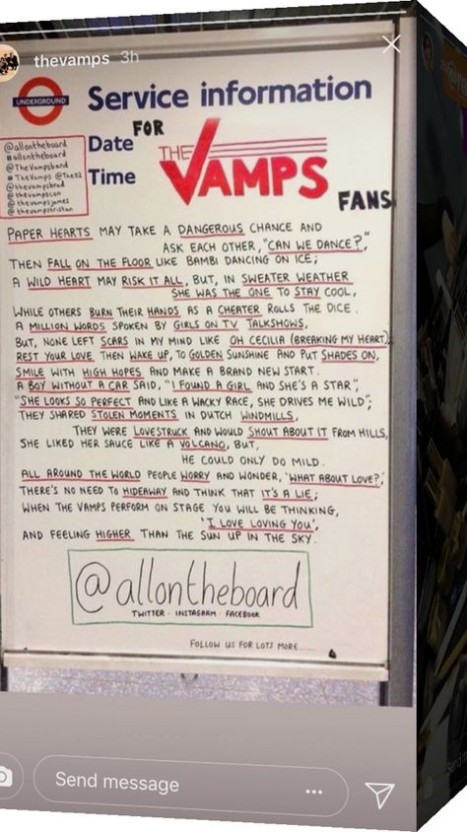 thevamps 3h
UNDERGROUND
Service information
Date
FOR
Time
THE
VAMPS
FANS
@allontheboard
#allontheboard
@TheVampsband
@thevampsbrad
@thevampscon
@thevampsjames
@thevampstristan
PAPER HEARTS MAY TAKE A DANGEROUS CHANCE AND
ASK EACH OTHER, "CAN WE DANCE?",
THEN FALL ON THE FLOOR LIKE BAMBI DANCING ON ICE;
A WILD HEART MAY RISK IT ALL, BUT, IN SWEATER WEATHER
SHE WAS THE ONE TO STAY COOL,
WHILE OTHERS BURN THEIR HANDS AS A CHEATER ROLLS THE DICE.
A MILLION WORDS SPOKEN BY GIRLS ON TV TALKSHOWS,
BUT, NONE LEFT SCARS IN MY MIND LIKE OH CECILIA (BREAKING MY HEART)
REST YOUR LOVE THEN WAKE UP, TO GOLDEN SUNSHINE AND PUT SHADES ON,
SMILE WITH HIGH HOPES AND MAKE A BRAND NEW START.
A BOY WITHOUT A CAR SAID, "I FOUND A GIRL AND SHE'S A STAR",
"SHE LOOKS SO PERFECT AND LIKE A WACKY RACE, SHE DRIVES ME WILD";
THEY SHARED STOLEN MOMENTS IN DUTCH WINDMILLS,
THEY WERE LOVESTRUCK AND WOULD SHOUT ABOUT IT FROM HILLS,
SHE LIKED HER SAUCE LIKE A VOLCANO, BUT,
HE COULD ONLY DO MILD.
ALL AROUND THE WORLD PEOPLE WORRY AND WONDER, 'WHAT ABOUT LOVE?',
THERE'S NO NEED TO HIDEAWAY AND THINK THAT IT'S A LIE;
WHEN THE VAMPS PERFORM ON STAGE YOU WILL BE THINKING,
'I LOVE LOVING YOU',
AND FEELING HIGHER THAN THE SUN UP IN THE SKY.
@allontheboard
TWITTER · INSTAGRAM · FACEBOOK
FOLLOW US FOR LOTS MORE...
Send message